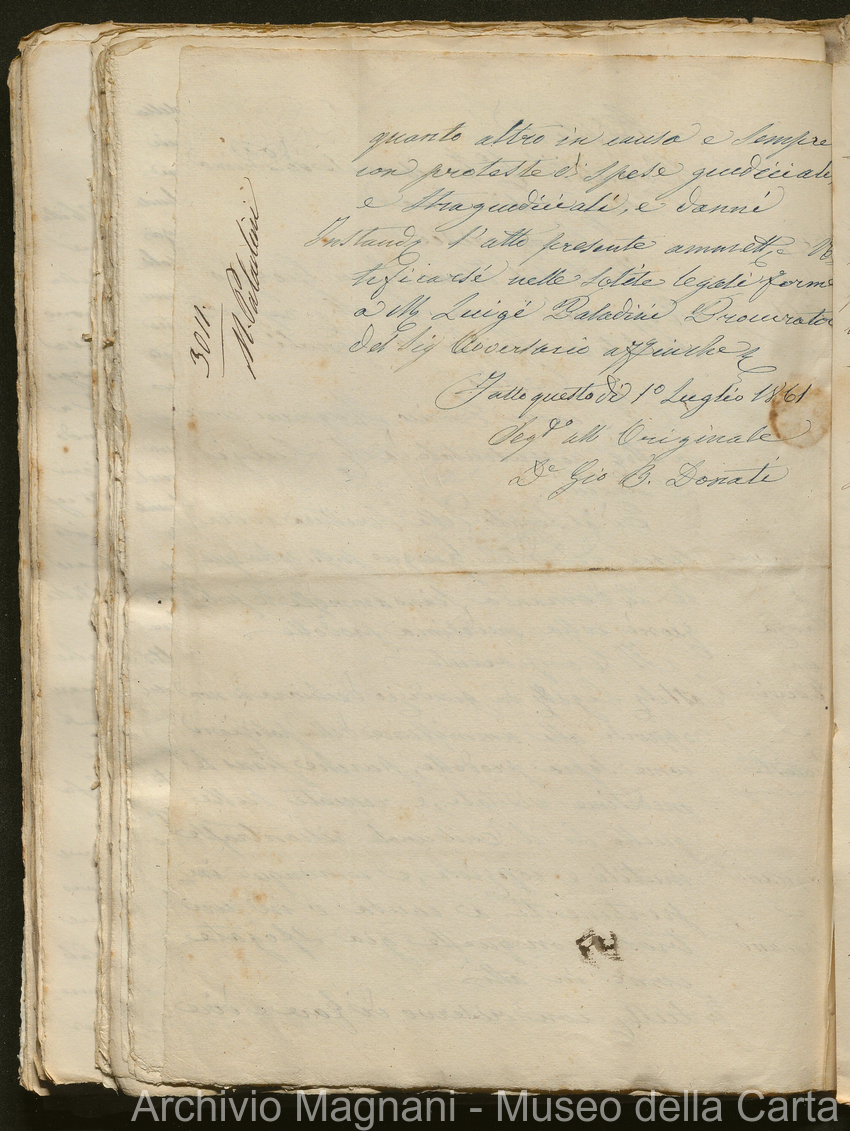 quanto altro in causa e sempre
con proteste di spese giudiciali,
e stragiudiciali, e danni
Instando l'atto presente ammettersi
tificarsi nelle solite legali forme
a Mr Luigi Paladini Procurator
del Sig Avversario affinche
Fatto questo dì 1° Luglio 1861
Segto all Originale
Dr Gio B. Donati
3011.
Mr Paladini
Archivio Magnani - Museo della Carta